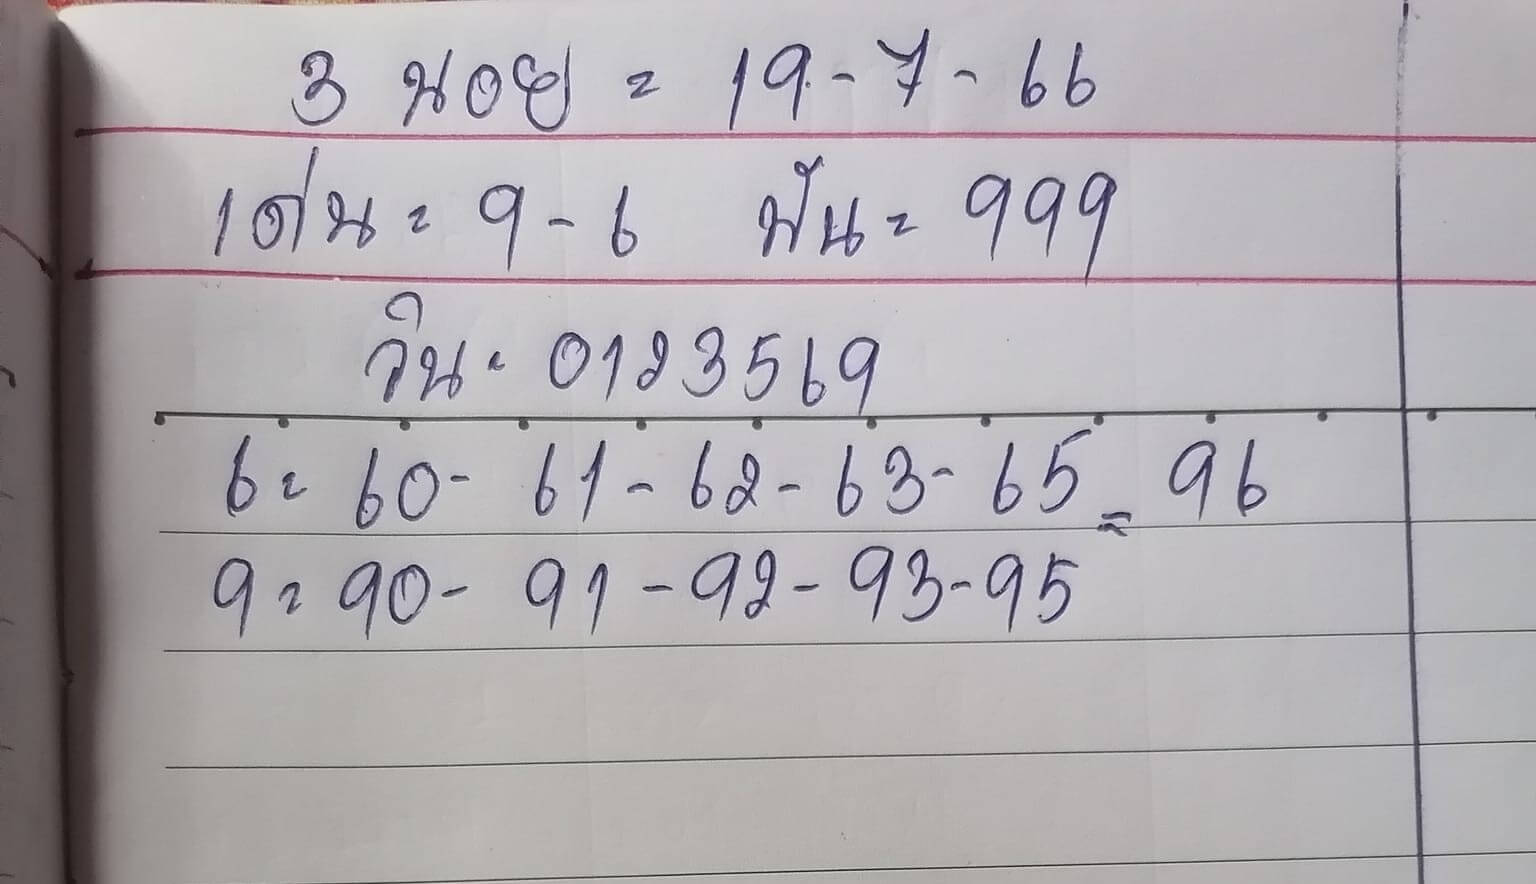 3 นอย = 19-7-66
เด่น = 9-6 ฟัน = 999
วิน = 0123569
6 = 60-61-62-63-65 = 96
9 = 90-91-92-93-95